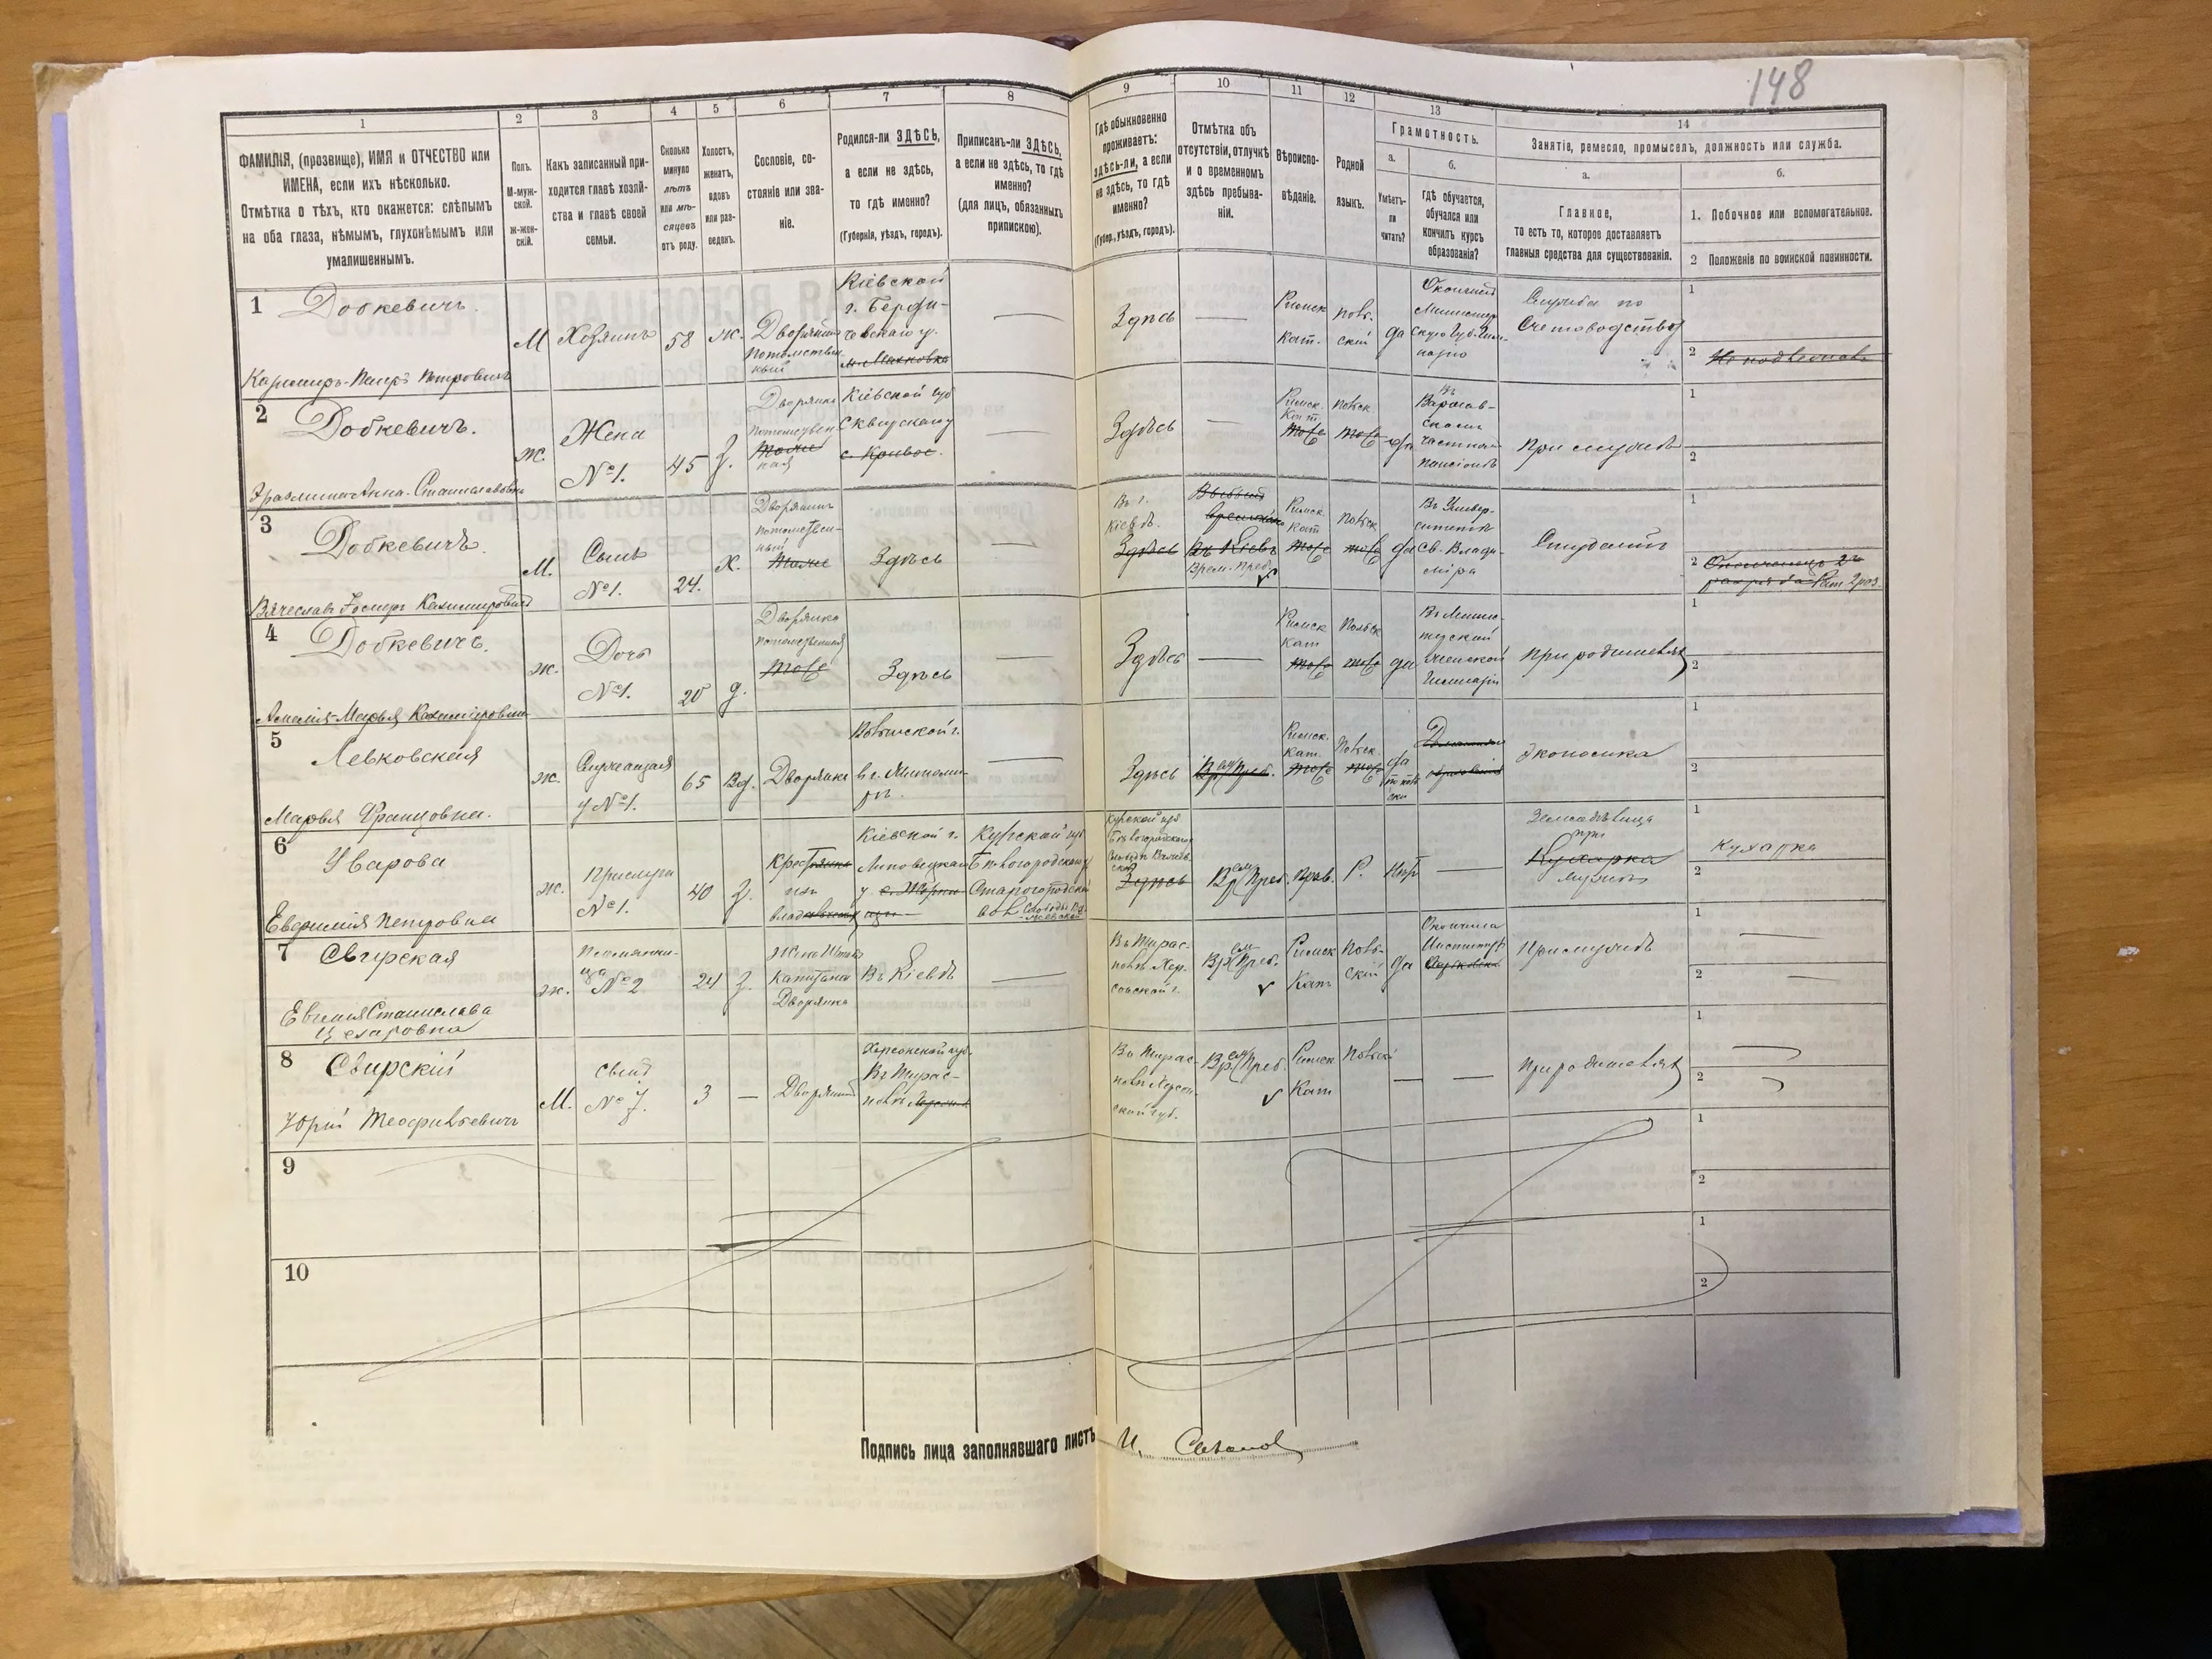 148
1
2
3
4
5
6
7
8
9
10
11
12
13
14
ФАМИЛІЯ, (прозвище), ИМЯ и ОТЧЕСТВО или
ИМЕНА, если ихъ нѣсколько.
Отмѣтка о тѣхъ, кто окажется: слѣпымъ
на оба глаза, нѣмымъ, глухонѣмымъ или
умалишеннымъ.
Полъ.
М-муж-
ской.
Ж-жен-
скій.
Какъ записанный при-
ходится главѣ хозяй-
ства и главѣ своей
семьи.
Сколько
минуло
лѣтъ
или мѣ-
сяцевъ
отъ роду.
Холостъ,
женатъ,
вдовъ
или раз-
веденъ.
Сословіе, со-
стояніе или зва-
ніе.
Родился-ли ЗДѢСЬ,
а если не здѣсь,
то гдѣ именно?
(Губернія, уѣздъ, городъ).
Приписанъ-ли ЗДѢСЬ,
а если не здѣсь, то гдѣ
именно?
(для лицъ, обязанныхъ
припискою).
Гдѣ обыкновенно
проживаетъ:
здѣсь-ли, а если
не здѣсь, то гдѣ
именно?
(Губер., уѣздъ, городъ).
Отмѣтка объ
отсутствіи, отлучкѣ
и о временномъ
здѣсь пребыва-
ніи.
Вѣроиспо-
вѣданіе.
Родной
языкъ.
Грамотность.
а.
Умѣетъ-
ли
читать?
б.
Гдѣ обучается,
обучался или
кончилъ курсъ
образованія?
Занятіе, ремесло, промыселъ, должность или служба.
а.
Главное,
то есть то, которое доставляетъ
главныя средства для существованія.
б.
1. Побочное или вспомогательное.
2 Положеніе по воинской повинности.
1
Добкевичъ.
Казимиръ-Петръ Петровичъ
М
Хозяинъ
58
ж.
Дворянинъ
Потомствен-
ный
Кіевской
г. Берди-
чевскаго у.
м. Махновка
Здѣсь
Римск
Кат.
Поль-
скій
да
Окончилъ
Служба по
Счетоводству
1
2
Не подлежитъ
2
Добкевичъ.
Анна Станиславовна
ж.
Жена
№ 1.
45
З.
Дворянка
Потомствен
Тоже
ная
Кіевской губ
Сквирскаго у
с. Кривое.
Здѣсь
Римск.
Кат
тоже
Польск.
тоже
да
Въ
Варшав-
скомъ
частномъ
пансіонѣ
При мужѣ
1
2
3
Добкевичъ.
Вячеславъ Іосифъ Казимировичъ
М.
Сынъ
№ 1.
24.
Х.
Дворянинъ
потомствен-
ный
Тоже
Здѣсь
Въ г.
Кіевѣ.
Здѣсь
въ Кіевѣ
Врем. Преб.
Римск
кат
тоже
Польск
тоже
да
Въ Универ-
ситетѣ
Св. Влади-
міра
Студентъ
1
2
4
Добкевичъ.
Амалія-Марья Казимировна
ж.
Дочь
№ 1.
20
д.
Дворянка
потомственная
тоже
Здѣсь
Здѣсь
Римск
кат
тоже
Польск
тоже
да
При родителяхъ
1
2
5
Левковская
Марья Францовна.
ж.
Служащая
у № 1.
65
Вд.
Дворянка
Волынской г.
въ г. Житоми-
рѣ.
Здѣсь
Вр. Преб.
Римск.
кат.
тоже
Польск.
тоже
да
Экономка
1
2
6
Уварова
Евфимія Петровна
ж.
Прислуга
№ 1.
40
З.
Кіевской г.
Липовецкаго
у.
Курской губ
Бѣлгородскаго у
Здѣсь
Вр. Преб.
Прав.
Р.
Нѣтъ
Кухарка
1
Кухарка
2
7
Свирская
Евгенія Станислава
Цезаровна
ж.
Племянни-
ца № 2
24
З.
Жена Штабсъ
Капитана
Дворянка
Въ Кіевѣ
Въ Тирас-
полѣ Хер-
сонской г.
Вр. Преб.
Римск
Кат
Поль-
скій
да
Окончила
Институтъ
При мужѣ
1
2
8
Свирскій
Юрій Теофильевичъ
М.
Сынъ
№ 7.
3
Дворянинъ
Херсонской губ.
Въ Тирас-
полѣ
Въ Тирас-
полѣ Херсон-
ской губ.
Вр. Преб.
Римск
Кат
Польскій
При родителяхъ
1
2
9
1
2
10
1
2
Подпись лица заполнявшаго листъ